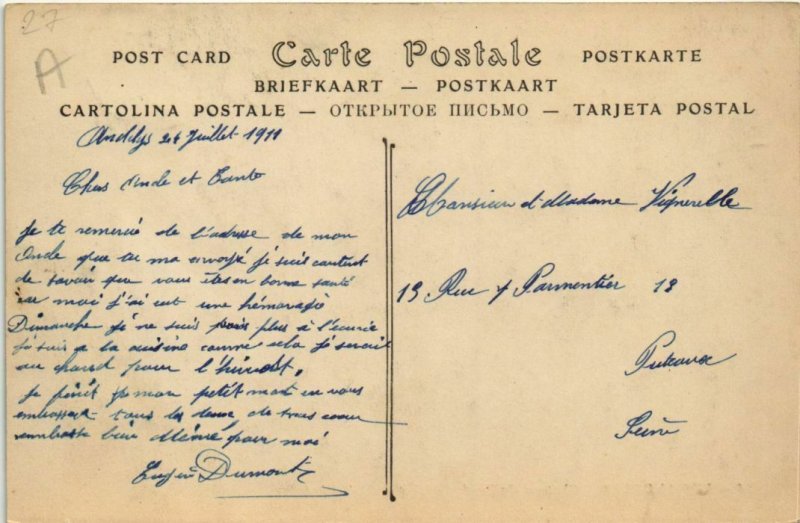 27
A
POST CARD Carte Postale POSTKARTE
BRIEFKAART — POSTKAART
CARTOLINA POSTALE — ОТКРЫТОЕ ПИСЬМО — TARJETA POSTAL
Andelys 24 Juillet 1911
Chers Oncle et Tante
Je te remercie de l'adresse de mon
Oncle que tu ma envoyé je suis contant
de savoir que vous êtes en bonne santé
moi j'ai eut une hémoragie
Dimanche je ne suis pais plus à l'écurie
je suis a la cuisine comme cela je serait
au chaud pour l'hivert,
Je finit mon petit mot en vous
embrassant tous les deux, de tous coeur
bien Mémé pour moi
Eugène Dumont
Monsieur et Madame Vignerelle
13 Rue Parmentier 13
Puteaux
Seine